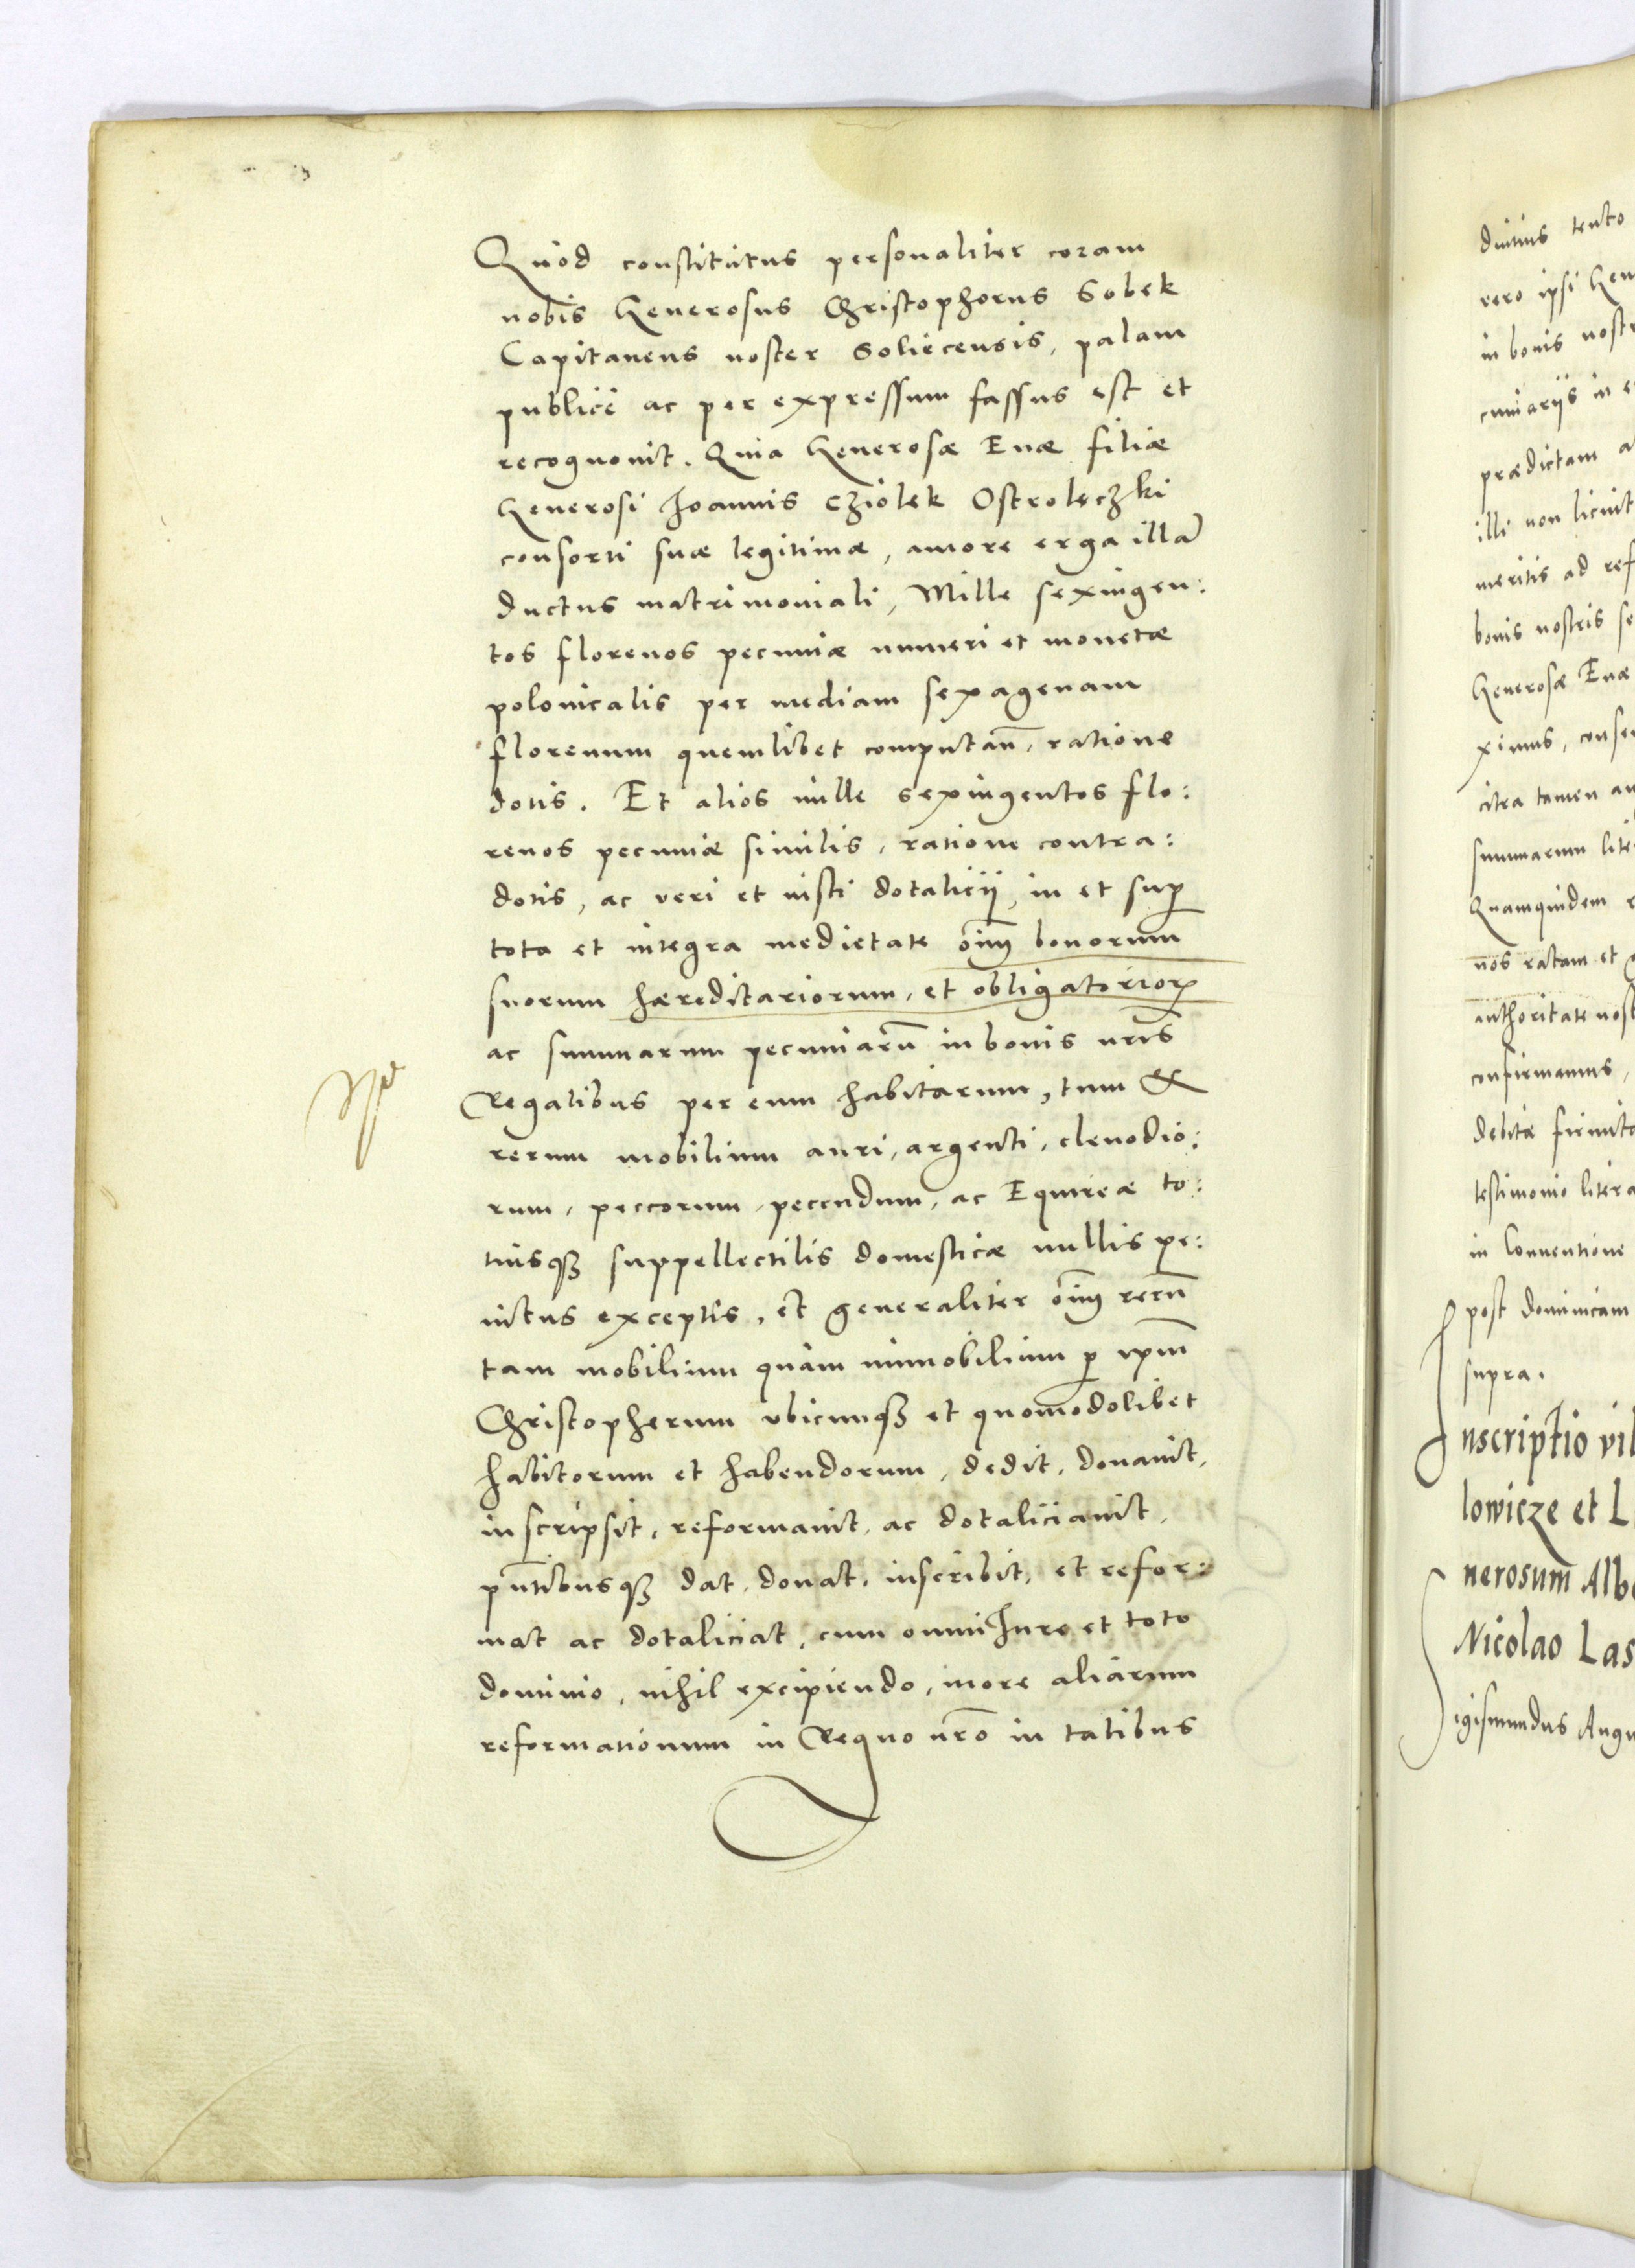 Quod constitutus personaliter coram
nobis Generosus Christophorus Sobek
Capitaneus noster Soliecensis, palam
publicè ac per expressum fassus est et
recognouit. Quia Generosæ Euæ filiæ
Generosi Joannis Cziolek Ostrolęczki
consorti suæ legitimæ, amore erga illā
ductus matrimoniali, Mille sexingen:
tos florenos pecuniæ numeri et monetæ
polonicalis per mediam sexagenam
florenum quemlibet computañ, ratione
dotis. Et alios mille sexingentos flo:
renos pecuniæ similis, ratione contra:
dotis, ac veri et iusti dotalicij, in et sup
tota et integra medietate oīm bonorum
suorum hæreditariorum, et obligatorioꝝ
ac summarum pecuniarū in bonis nr̄is
Regalibus per eum habitarum, tum &
rerum mobilium auri, argenti, clenodio:
rum, peccorum, pecudum, ac Equireæ to:
tiusqꝫ suppellectilis domesticæ nullis pe:
nitus exceptis, et generaliter oīm rerū
tam mobilium quàm immobilium ꝑ ip̄m
Christopherum vbicunqꝫ et quomodolibet
habitorum et habendorum, dedit, donauit,
inscripsit, reformauit, ac dotaliciauit,
pn̄tibusqꝫ dat, donat, inscribit, et refor:
mat ac dotaliciat, cum omni Jure et toto
dominio, nihil excipiendo, more aliarum
reformationum in Regno nr̄o in talibus
diutius tento
vero ipsi Gen
in bonis nostr
cuniarijs in e
prædictam a
illi non licuit
meritis ad ref
bonis nostris se
Generosæ Euæ
ximus, conse
citra tamen an
summarum lite
Quamquidem r
nos ratam et g
authoritate nost
confirmamus,
debitæ firmita
testimonio litera
in Conuentione
post dominicam
supra.
Inscriptio vil
lowicze et L
nerosum Albe
Nicolao Las
Sigismundus Augu